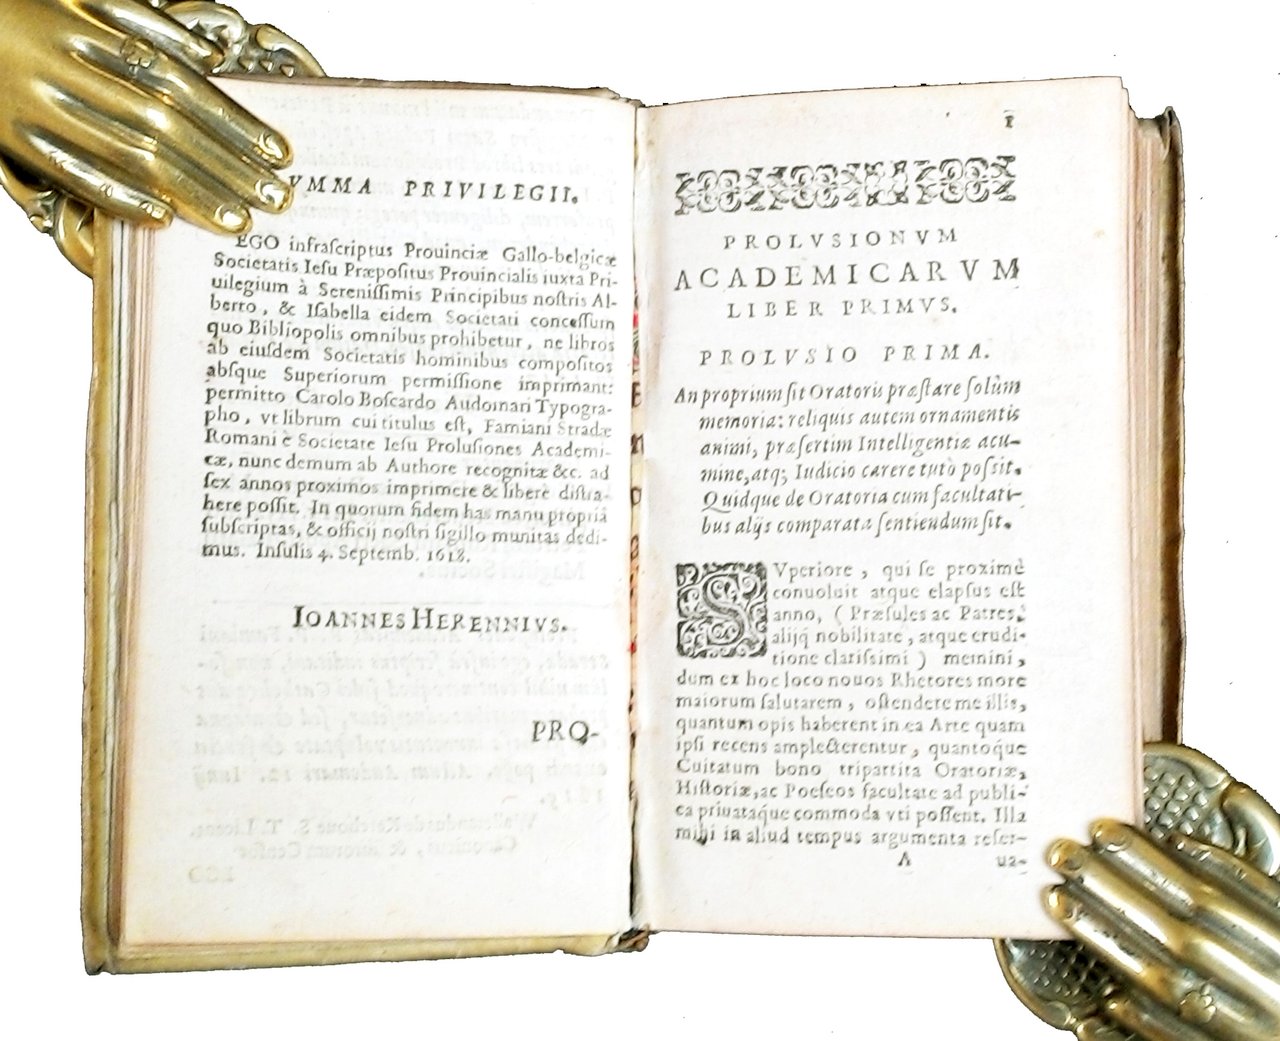 VMMA PRIVILEGII.
EGO infraſcriptus Prouinciæ Gallo-belgicæ
Societatis Ieſu Præpoſitus Prouincialis iuxta Pri-
uilegium à Sereniſſimis Principibus noſtris Al-
berto, & Iſabella eidem Societati conceſſum
quo Bibliopolis omnibus prohibetur, ne libros
ab eiuſdem Societatis hominibus compoſitos
abſque Superiorum permiſſione imprimant:
permitto Carolo Boſcardo Audomari Typogra-
pho, vt librum cui titulus eſt, Famiani Stradæ
Romani è Societate Ieſu Proluſiones Academi-
cæ, nunc demum ab Authore recognitæ &c. ad
ſex annos proximos imprimere & liberè diſtra-
here poſſit. In quorum fidem has manu propriâ
ſubſcriptas, & officij noſtri ſigillo munitas dedi-
mus. Inſulis 4. Septemb. 1618.
IOANNES HERENNIVS.
PRO-
1
PROLVSIONVM
ACADEMICARVM
LIBER PRIMVS.
PROLVSIO PRIMA.
An proprium ſit Oratoris præſtare ſolùm
memoria: reliquis autem ornamentis
animi, præſertim Intelligentiæ acu-
mine, atq; Iudicio carere tutò poſſit.
Quidque de Oratoria cum facultati-
bus alijs comparata ſentiendum ſit.
SVperiore, qui ſe proximè
conuoluit atque elapſus eſt
anno, (Præſules ac Patres,
alijq́ nobilitate, atque erudi-
tione clariſſimi) memini,
dum ex hoc loco nouos Rhetores more
maiorum ſalutarem, oſtendere me illis,
quantum opis haberent in ea Arte quam
ipſi recens amplecterentur, quantoque
Cuitatum bono tripartita Oratoriæ,
Hiſtoriæ, ac Poeſeos facultate ad publi-
ca priuatáque commoda vti poſſent. Illa
mihi in aliud tempus argumenta reſer-
A ua-